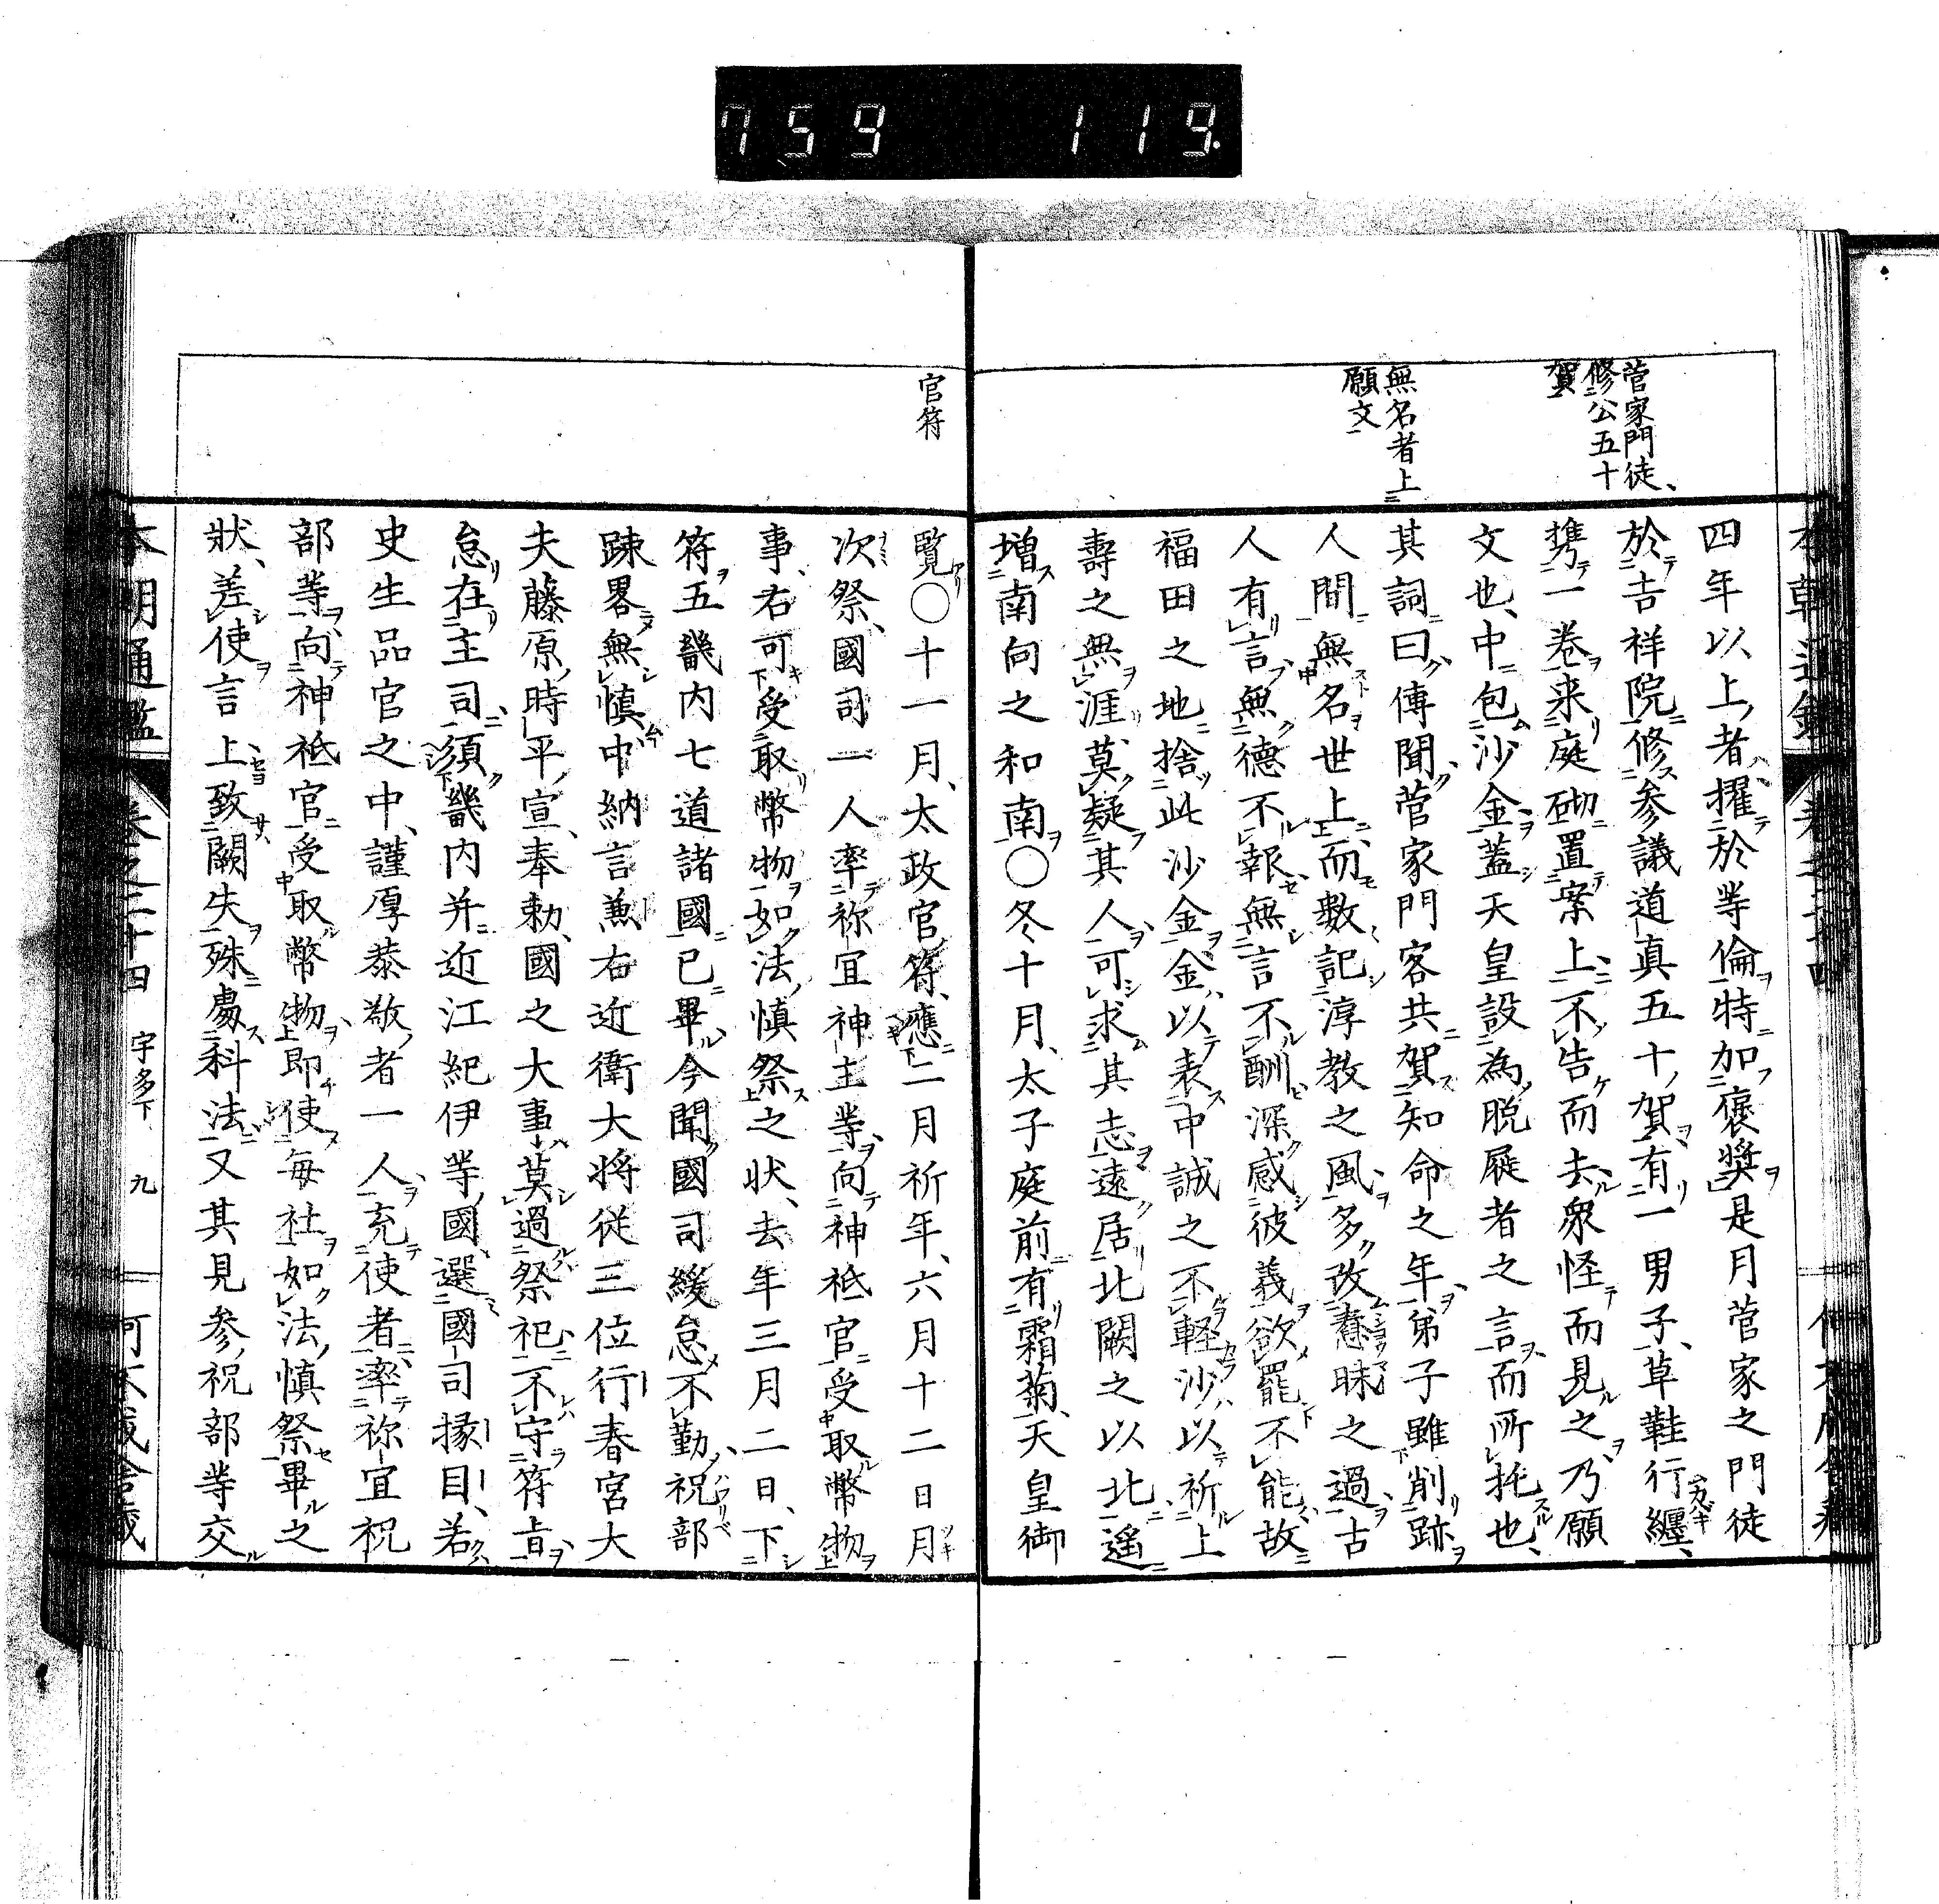 759 119.
菅家門徒
修公五十
賀
無名者上
願文
四年以上者擢於等倫特加褒奨是月菅家之門徒
於吉祥院修参議道真五十賀有一男子草鞋行纏
携一巻来庭砌置案上不告而去衆怪而見之乃願
文也中包沙金蓋天皇設為脱屣者之言而所托也
其詞曰傳聞菅家門客共賀知命之年弟子雖削跡
人間無名世上而數記淳教之風多改惷昧之過古
人有言無德不報無言不酬深感彼義欲罷不能故
福田之地捨此沙金金以表中誠之不軽沙以祈上
壽之無涯莫疑其人可求其志遠居北闕之以北遥
増南向之和南〇冬十月太子庭前有霜菊天皇御
官符
覧〇十一月太政官符應二月祈年六月十二日月
次祭國司一人率祢宜神主等向神祇官受取幣物
事右可受取幣物如法慎祭之状去年三月二日下
符五畿内七道諸國已畢今聞國司緩怠不勤祝部
踈畧無慎中納言兼右近衛大将従三位行春宮大
夫藤原時平宣奉勅國之大事莫過祭祀不守符旨
怠在主司須畿内并近江紀伊等國選國司掾目若
史生品官之中謹厚恭敬者一人充使者率祢宜祝
部等向神祇官受取幣物即使毎社如法慎祭畢之
狀差使言上致闕失殊處科法又其見参祝部等交
本朝通鑑 卷之二十四 宇多下 九